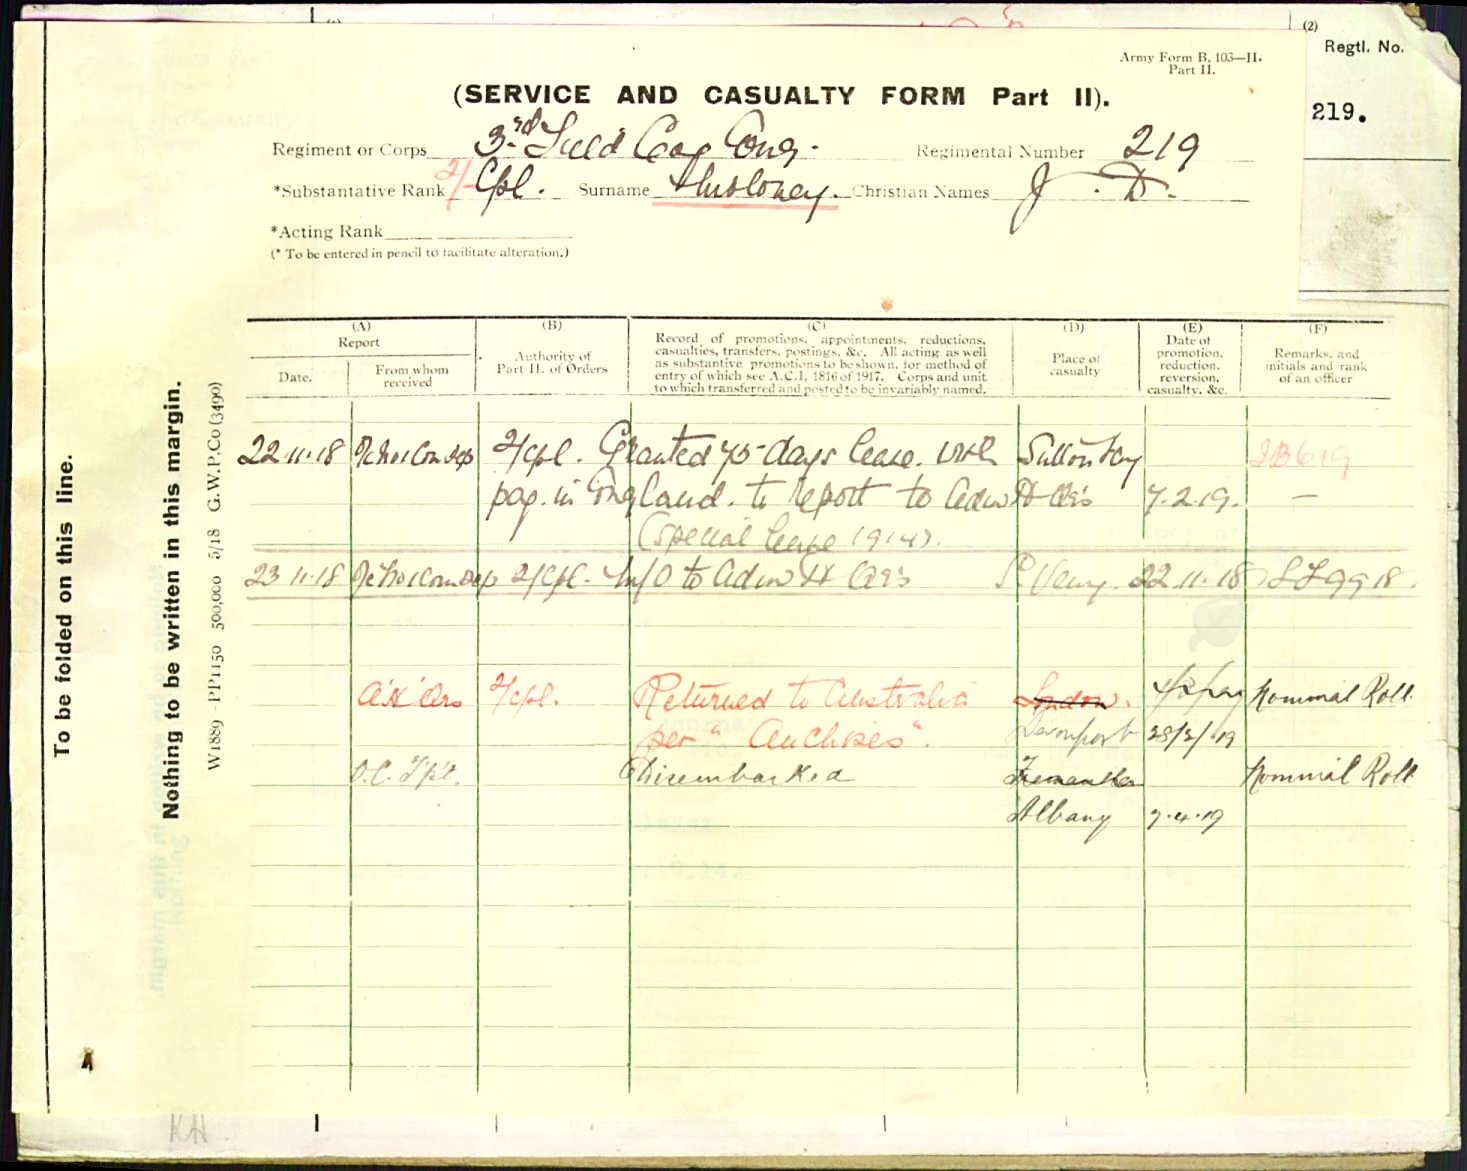 (2)
Regtl. No.
219.
Army Form B. 103—II.
Part II.
(SERVICE AND CASUALTY FORM Part II).
Regiment or Corps 3rd Field Coy Eng. Regimental Number 219
*Substantative Rank 2/Cpl. Surname Moloney. Christian Names J. D.
*Acting Rank
(* To be entered in pencil to facilitate alteration.)
To be folded on this line.
Nothing to be written in this margin.
W1889—PP1150 500,000 5/18 G.W.P.Co(3490)
(A) (B) (C) (D) (E) (F)
Report
Date. From whom received
Authority of Part II. of Orders
Record of promotions, appointments, reductions,
casualties, transfers, postings, &c. All acting as well
as substantive promotions to be shown, for method of
entry of which see A.C.I, 1816 of 1917. Corps and unit
to which transferred and posted to be invariably named.
Place of casualty
Date of promotion, reduction, reversion, casualty, &c.
Remarks, and initials and rank of an officer
22.11.18 2/Cpl. Granted 75 days leave with Sutton Veny
pay. in England. to report to Adm H Qrs 7.2.19. —
(special leave 1914).
23.11.18 2/Cpl. M/O to Adm H Qrs S. Veny. 22.11.18
A.H.Qrs 2/Cpl. Returned to Australia London. Nominal Roll
per "Anchises". Devonport
O.C. Tpt. Disembarked Fremantle Nominal Roll
Albany 7.4.19
KH